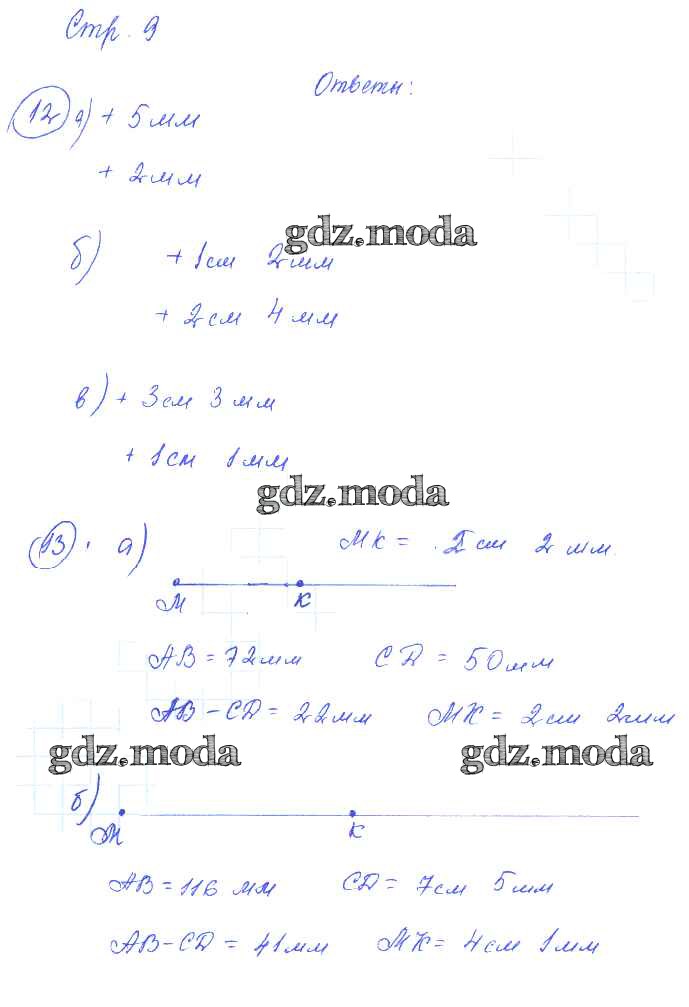 Стр. 9
Ответы:
12 а) + 5 мм
+ 2 мм
gdz.moda
б) + 1 см 2 мм
+ 2 см 4 мм
в) + 3 см 3 мм
+ 1 см 1 мм
gdz.moda
13. а) МК = 2 см 2 мм.
М К
АВ = 72 мм CD = 50 мм
АВ - CD = 22 мм МК = 2 см 2 мм
gdz.moda gdz.moda
б)
М К
АВ = 116 мм CD = 7 см 5 мм
АВ - CD = 41 мм МК = 4 см 1 мм